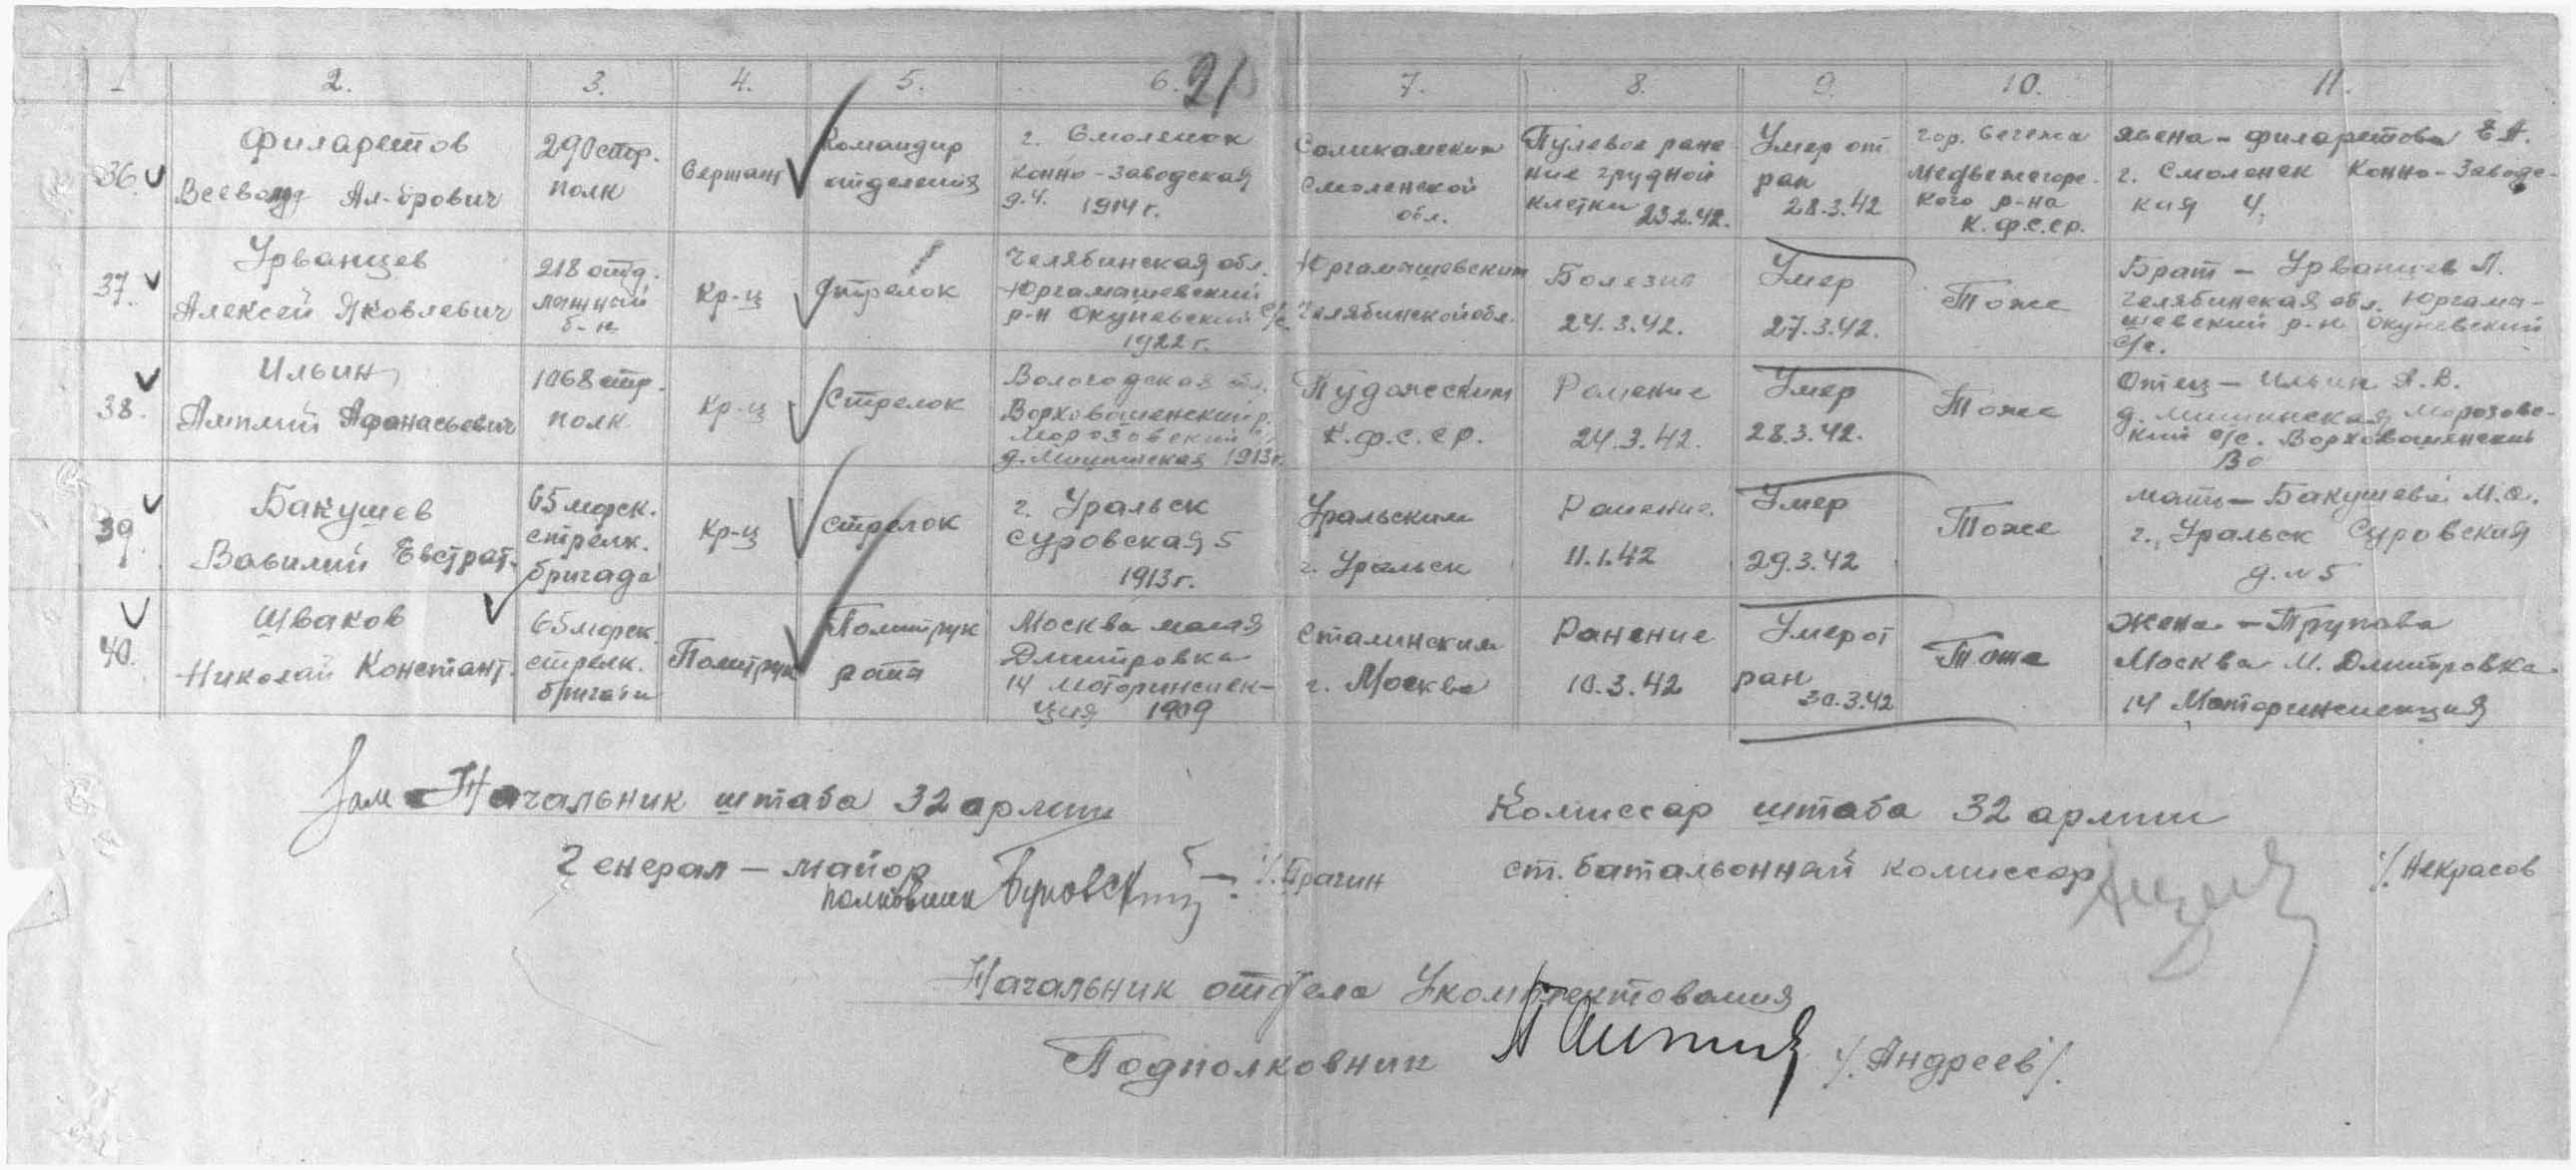 1 2. 3. 4. 5. 6. 21 7. 8. 9. 10. 11.
36.
Филаретов
Всеволод Ал-дрович
290 стр.
полк
Сержант
Командир
отделения
г. Смоленск
Конно-Заводская
д. 4. 1914 г.
Смоленской
обл.
Пулевое ране
ние грудной
клетки 23.2.42.
Умер от
ран
28.3.42
гор. Сегежа
Медвежегорс-
кого р-на
К.Ф.С.СР.
жена - Филаретова Е.А.
г. Смоленск Конно-Заводс-
кая 4.
37.
Урванцев
Алексей Яковлевич
218 отд.
лыжный
б-н
Кр-ц
Стрелок
Челябинская обл.
Юргамашевский
р-н Окуневский с/с.
1922 г.
Юргамашевским
Челябинской обл.
Болезнь
24.3.42.
Умер
27.3.42.
Тоже
Брат - Урванцев Л.
Челябинская обл. Юргама-
шевский р-н Окуневский
с/с.
38.
Ильин
Афанасьевич
1068 стр.
полк
Кр-ц
Стрелок
Вологодская обл.
Верховаженский р.
Морозовский
1913 г.
Пудожским
К.Ф.С.СР.
Ранение
24.3.42.
Умер
28.3.42.
Тоже
Отец - Ильин А.В.
д. Морозовс-
кий с/с. Верховаженский
Во
39.
Бакушев
Вавилий Евстрат.
65 морск.
стрелк.
бригада
Кр-ц
Стрелок
г. Уральск
Суровская 5
1913 г.
Уральским
г. Уральск
Ранение.
11.1.42
Умер
29.3.42
Тоже
мать - Бакушева М.О.
г. Уральск Суровская
д. № 5
40.
Шваков
Николай Констант.
65 морск.
стрелк.
бригады
Политрук
Политрук
роты
Москва малая
Дмитровка
14 Моторинспек-
ция 1909
Сталинским
г. Москва
Ранение
10.3.42
Умер от
ран
30.3.42
Тоже
жена - Трупова
Москва М. Дмитровка
14 Моторинспекция
Зам Начальник штаба 32 армии
Генерал-майор
полковник /. Брагин
Комиссар штаба 32 армии
ст. батальонный комиссар /. Некрасов
Начальник отдела Укомплектования
Подполковник /. Андреев /.